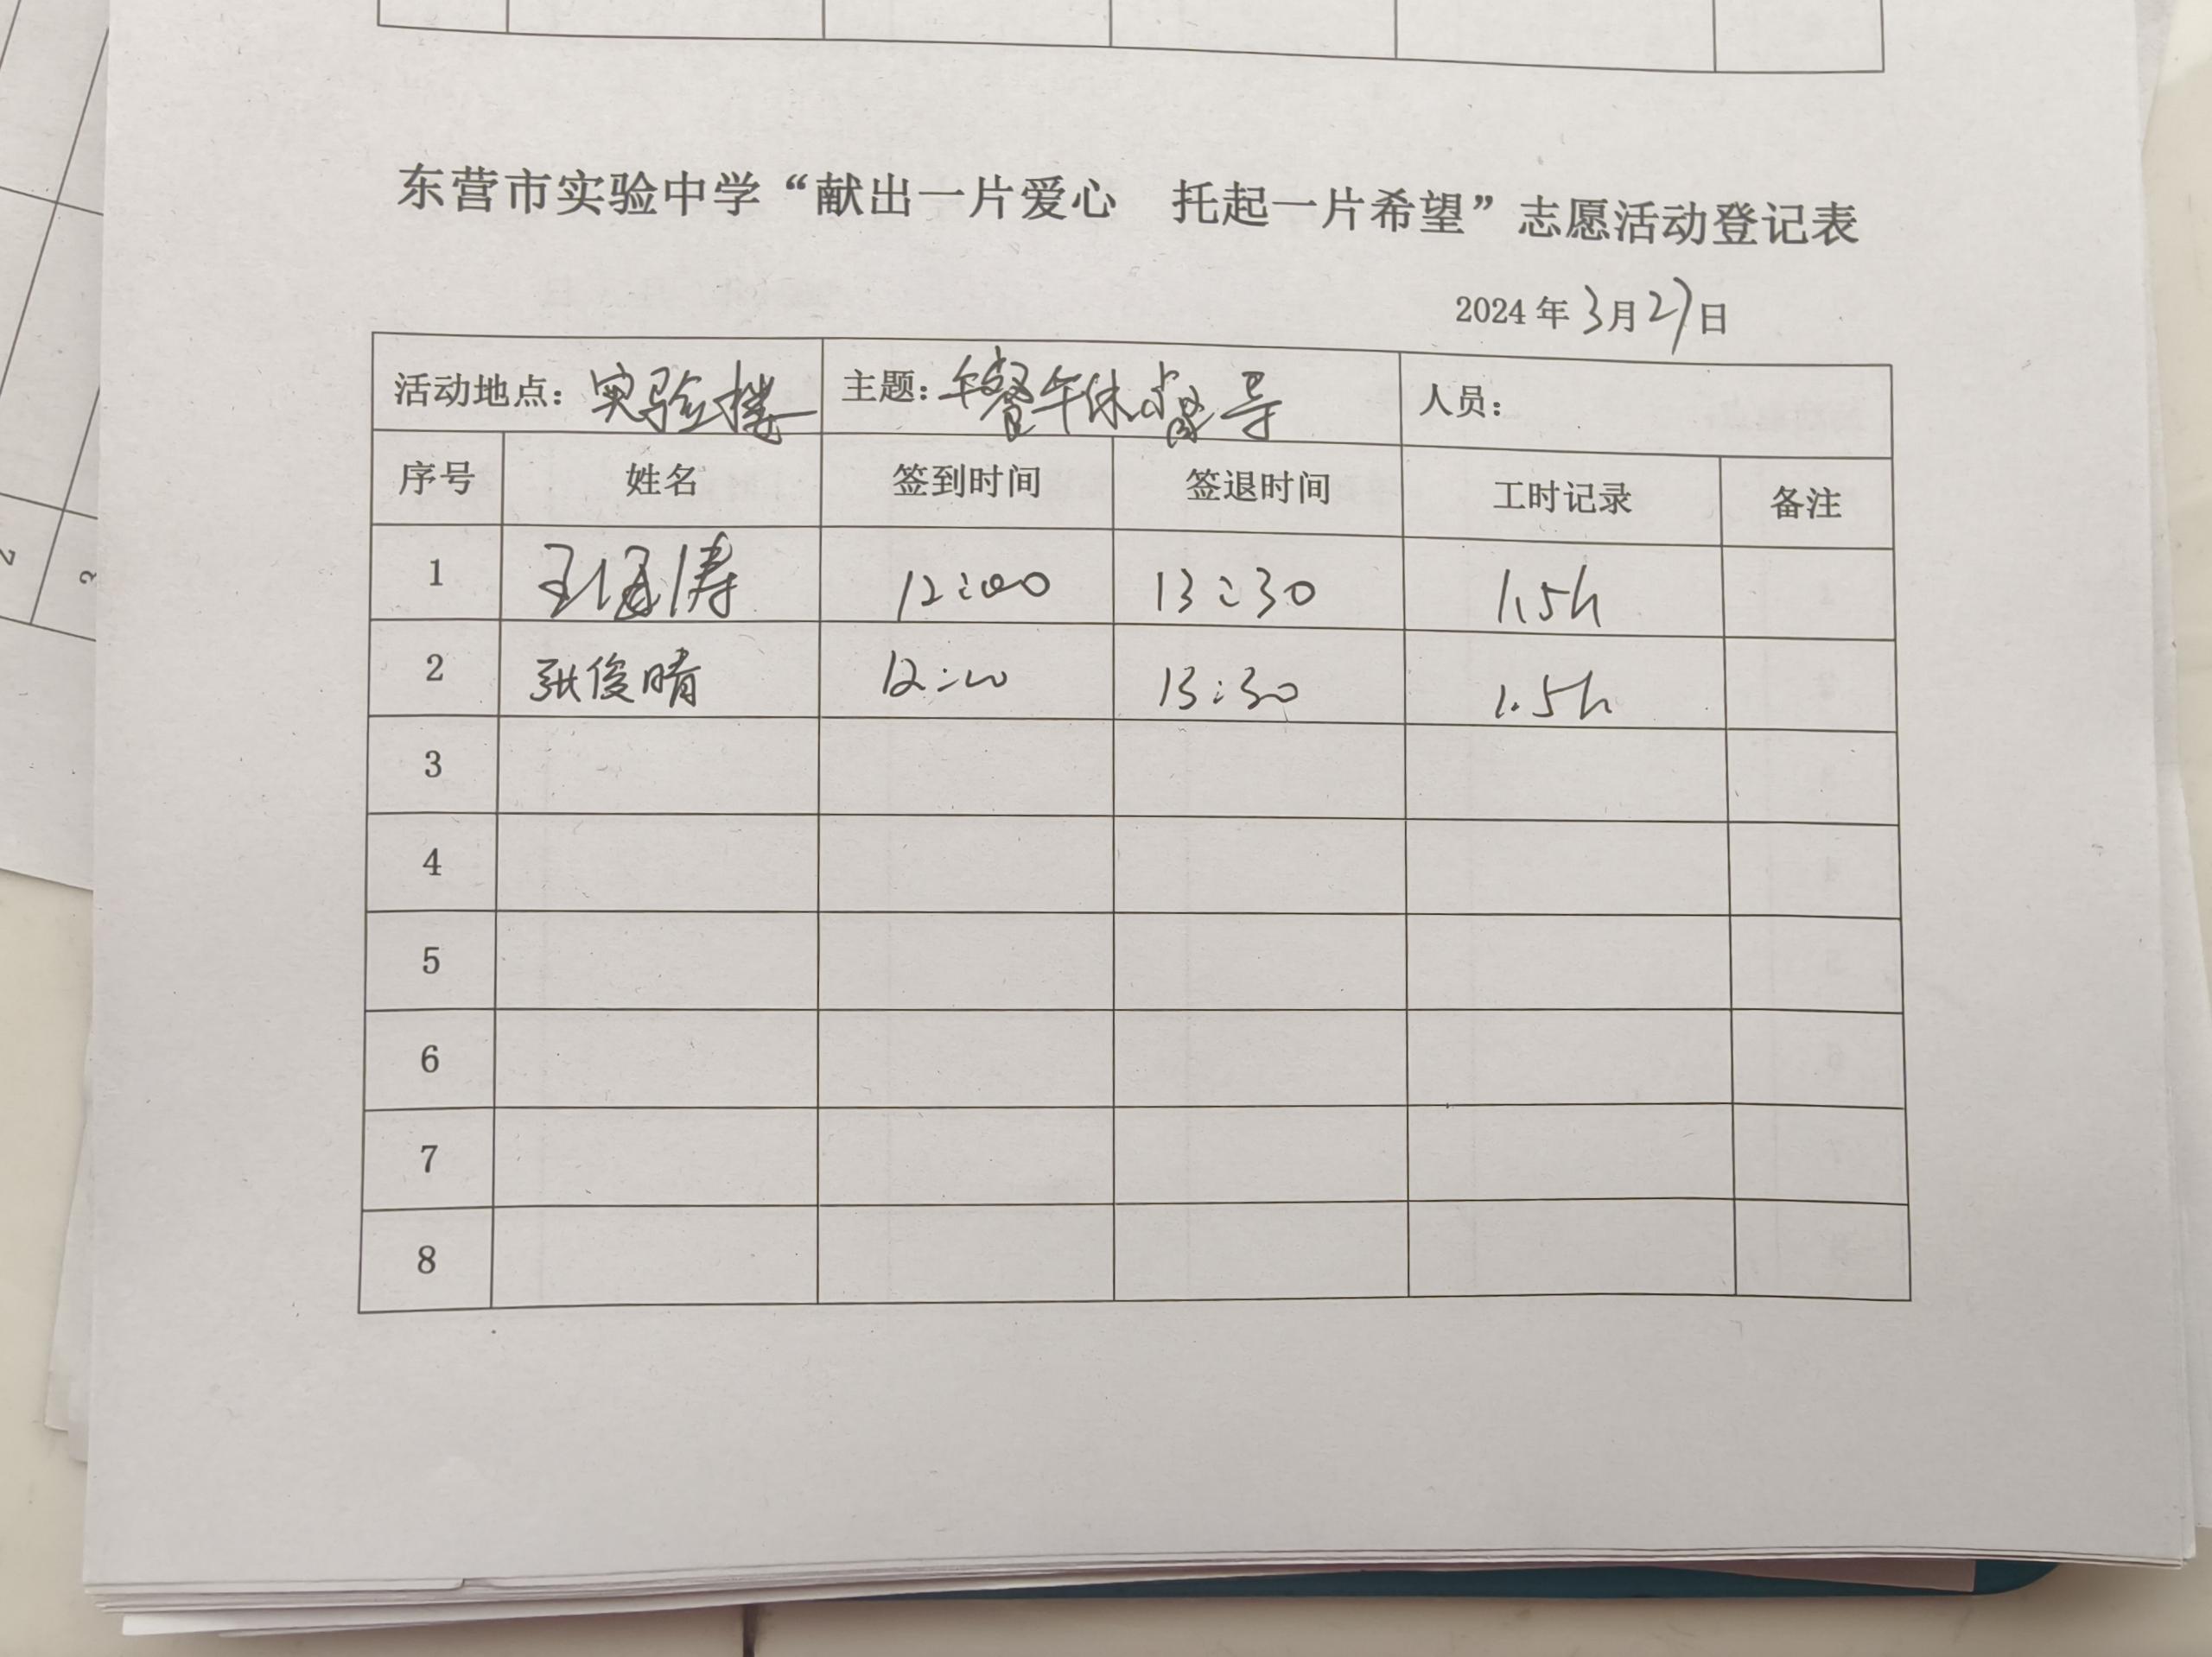 东营市实验中学“献出一片爱心 托起一片希望”志愿活动登记表
2024年3月27日
活动地点：实验楼 主题：午餐午休督导 人员：
序号 姓名 签到时间 签退时间 工时记录 备注
1 王 涛 12:00 13:30 1.5h
2 张俊晴 12:00 13:30 1.5h
3
4
5
6
7
8